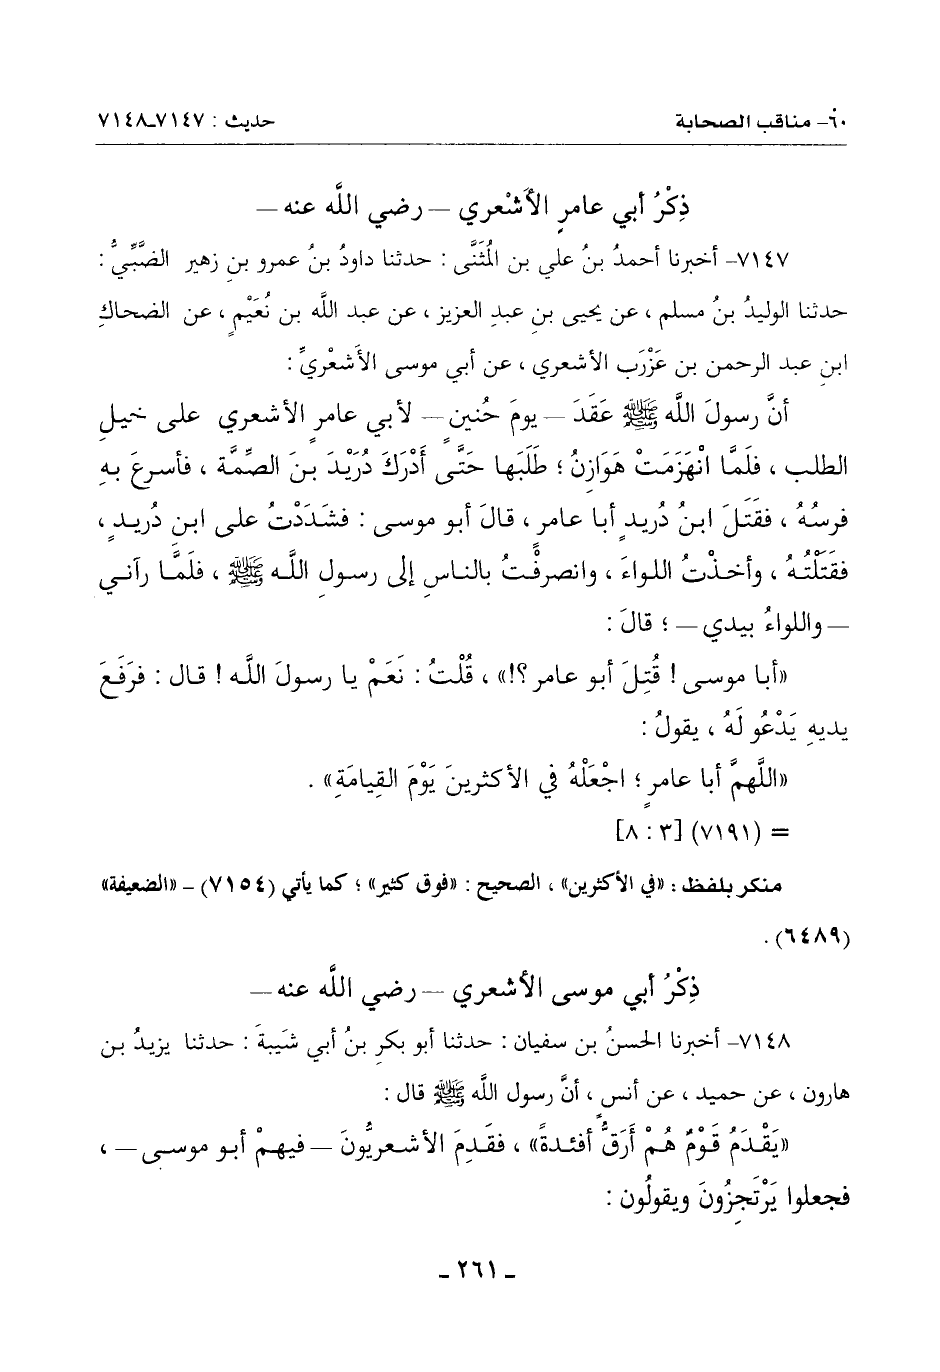 ٦٠- مناقب الصحابة حديث : ٧١٤٧-٧١٤٨
ذِكْرُ أبي عامرٍ الأَشْعري – رضي اللَّه عنه –
٧١٤٧- أخبرنا أحمدُ بنُ علي بن المُثَنَّى : حدثنا داودُ بنُ عمرو بنِ زهير الضَّبِّيُّ :
حدثنا الوليدُ بنُ مسلم ، عن يحيى بنِ عبدِ العزيز ، عن عبد اللَّه بن نُعَيْمٍ ، عن الضحاكِ
ابنِ عبد الرحمن بن عَزْرَب الأشعري ، عن أبي موسى الأَشعْريِّ :
أنَّ رسولَ اللَّه ﷺ عَقَدَ – يومَ حُنينٍ – لأبي عامرٍ الأشعري على خيلِ
الطلب ، فلَمَّا انْهَزَمَتْ هَوَازِنُ ؛ طَلَبَها حَتَّى أَدْرَكَ دُرَيْدَ بنَ الصِّمَّة ، فأسرعَ بهِ
فرسُهُ ، فقَتَلَ ابنُ دُريدٍ أبا عامر ، قالَ أبو موسى : فشَدَدْتُ على ابنِ دُريدٍ ،
فقَتَلْتُهُ ، وأخذْتُ اللواءَ ، وانصرفْتُ بالناسِ إلى رسولِ اللَّه ﷺ ، فلَمَّا رآني
– واللواءُ بيدي – ؛ قالَ :
«أبا موسى ! قُتِلَ أبو عامر ؟!» ، قُلْتُ : نَعَمْ يا رسولَ اللَّه ! قال : فرَفَعَ
يديهِ يَدْعُو لَهُ ، يقولُ :
«اللَّهمَّ أبا عامرٍ ؛ اجْعَلْهُ في الأكثرينَ يَوْمَ القِيامَةِ» .
= (٧١٩١) [٣ : ٨]
منكر بلفظ : «في الأكثرين» ، الصحيح : «فوق كثير» ؛ كما يأتي (٧١٥٤) – «الضعيفة»
(٦٤٨٩) .
ذِكْرُ أبي موسى الأشعري – رضي اللَّه عنه –
٧١٤٨- أخبرنا الحسنُ بن سفيان : حدثنا أبو بكرِ بنُ أبي شَيبةَ : حدثنا يزيدُ بن
هارون ، عن حميد ، عن أنس ، أنَّ رسول اللَّه ﷺ قال :
«يَقْدَمُ قَوْمٌ هُمْ أَرَقُّ أفئدةً» ، فقَدِمَ الأشعريُّونَ – فيهمْ أبو موسى – ،
فجعلوا يَرْتَجِزُونَ ويقولُون :
- ٢٦١ -